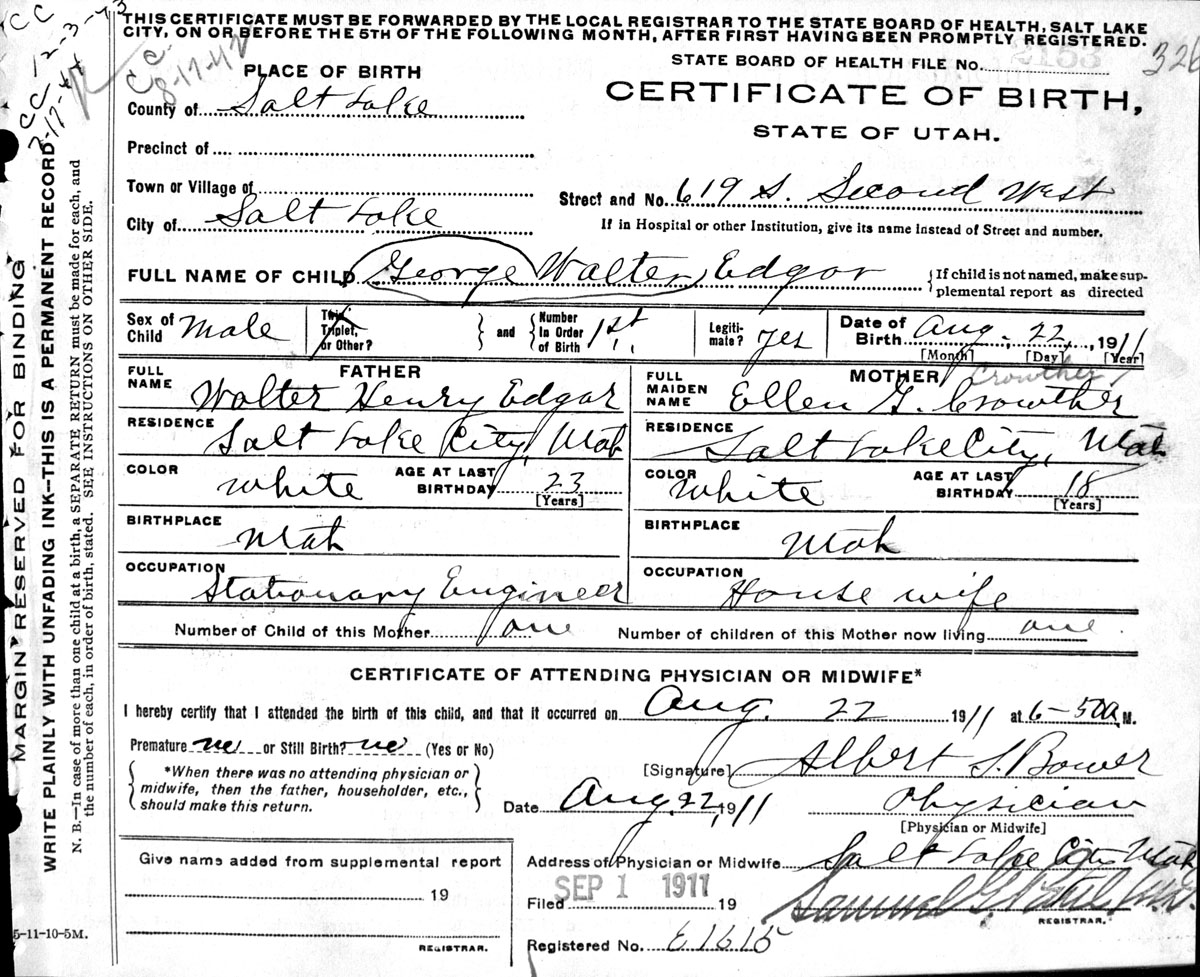 THIS CERTIFICATE MUST BE FORWARDED BY THE LOCAL REGISTRAR TO THE STATE BOARD OF HEALTH, SALT LAKE
CITY, ON OR BEFORE THE 5TH OF THE FOLLOWING MONTH, AFTER FIRST HAVING BEEN PROMPTLY REGISTERED.
CC 12-3-43
CC 2-17-44
CC 8-17-42
STATE BOARD OF HEALTH FILE No. 326
PLACE OF BIRTH
CERTIFICATE OF BIRTH,
STATE OF UTAH.
County of Salt Lake
Precinct of
Town or Village of
City of Salt Lake
Street and No. 619 S. Second West
If in Hospital or other Institution, give its name instead of Street and number.
FULL NAME OF CHILD George Walter Edgar
{If child is not named, make sup-
plemental report as directed
Sex of Child Male
Twin, Triplet, or Other? } and { Number In Order of Birth 1st
Legiti-mate? yes
Date of Birth Aug. 22, 1911
[Month] [Day] [Year]
FATHER
FULL NAME Walter Henry Edgar
RESIDENCE Salt Lake City, Utah
COLOR White AGE AT LAST BIRTHDAY 23 [Years]
BIRTHPLACE Utah
OCCUPATION Stationary Engineer
MOTHER Crowther
FULL MAIDEN NAME Ellen G. Crowther
RESIDENCE Salt Lake City, Utah
COLOR White AGE AT LAST BIRTHDAY 18 [Years]
BIRTHPLACE Utah
OCCUPATION House wife
Number of Child of this Mother one Number of children of this Mother now living one
CERTIFICATE OF ATTENDING PHYSICIAN OR MIDWIFE*
I hereby certify that I attended the birth of this child, and that it occurred on Aug. 22 1911 at 6-50 a. M.
Premature no or Still Birth? no (Yes or No)
{ *When there was no attending physician or
midwife, then the father, householder, etc.,
should make this return. }
[Signature] Albert S. Bower
Date Aug 22, 1911 Physician
[Physician or Midwife]
Address of Physician or Midwife Salt Lake City Utah
Filed SEP 1 1911 19
Samuel G.
REGISTRAR.
Registered No. E1615
Give name added from supplemental report
19
REGISTRAR.
5-11-10-5M.
MARGIN RESERVED FOR BINDING
WRITE PLAINLY WITH UNFADING INK—THIS IS A PERMANENT RECORD
N. B.—In case of more than one child at a birth, a SEPARATE RETURN must be made for each, and
the number of each, in order of birth, stated. SEE INSTRUCTIONS ON OTHER SIDE.